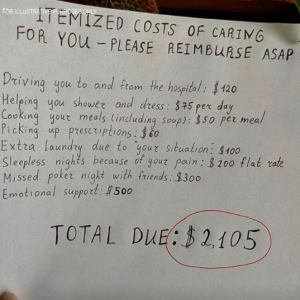 FOR ILLUSTRATIVE PURPOSES ONLY
ITEMIZED COSTS OF CARING
FOR YOU – PLEASE REIMBURSE ASAP
Driving you to and from the hospital: $120
Helping you shower and dress: $75 per day
Cooking your meals (including soup): $50 per meal
Picking up prescriptions: $60
Extra laundry due to "your situation": $100
Sleepless nights because of your pain: $200 flat rate
Missed poker night with friends: $300
Emotional support: $500
TOTAL DUE: $2,105